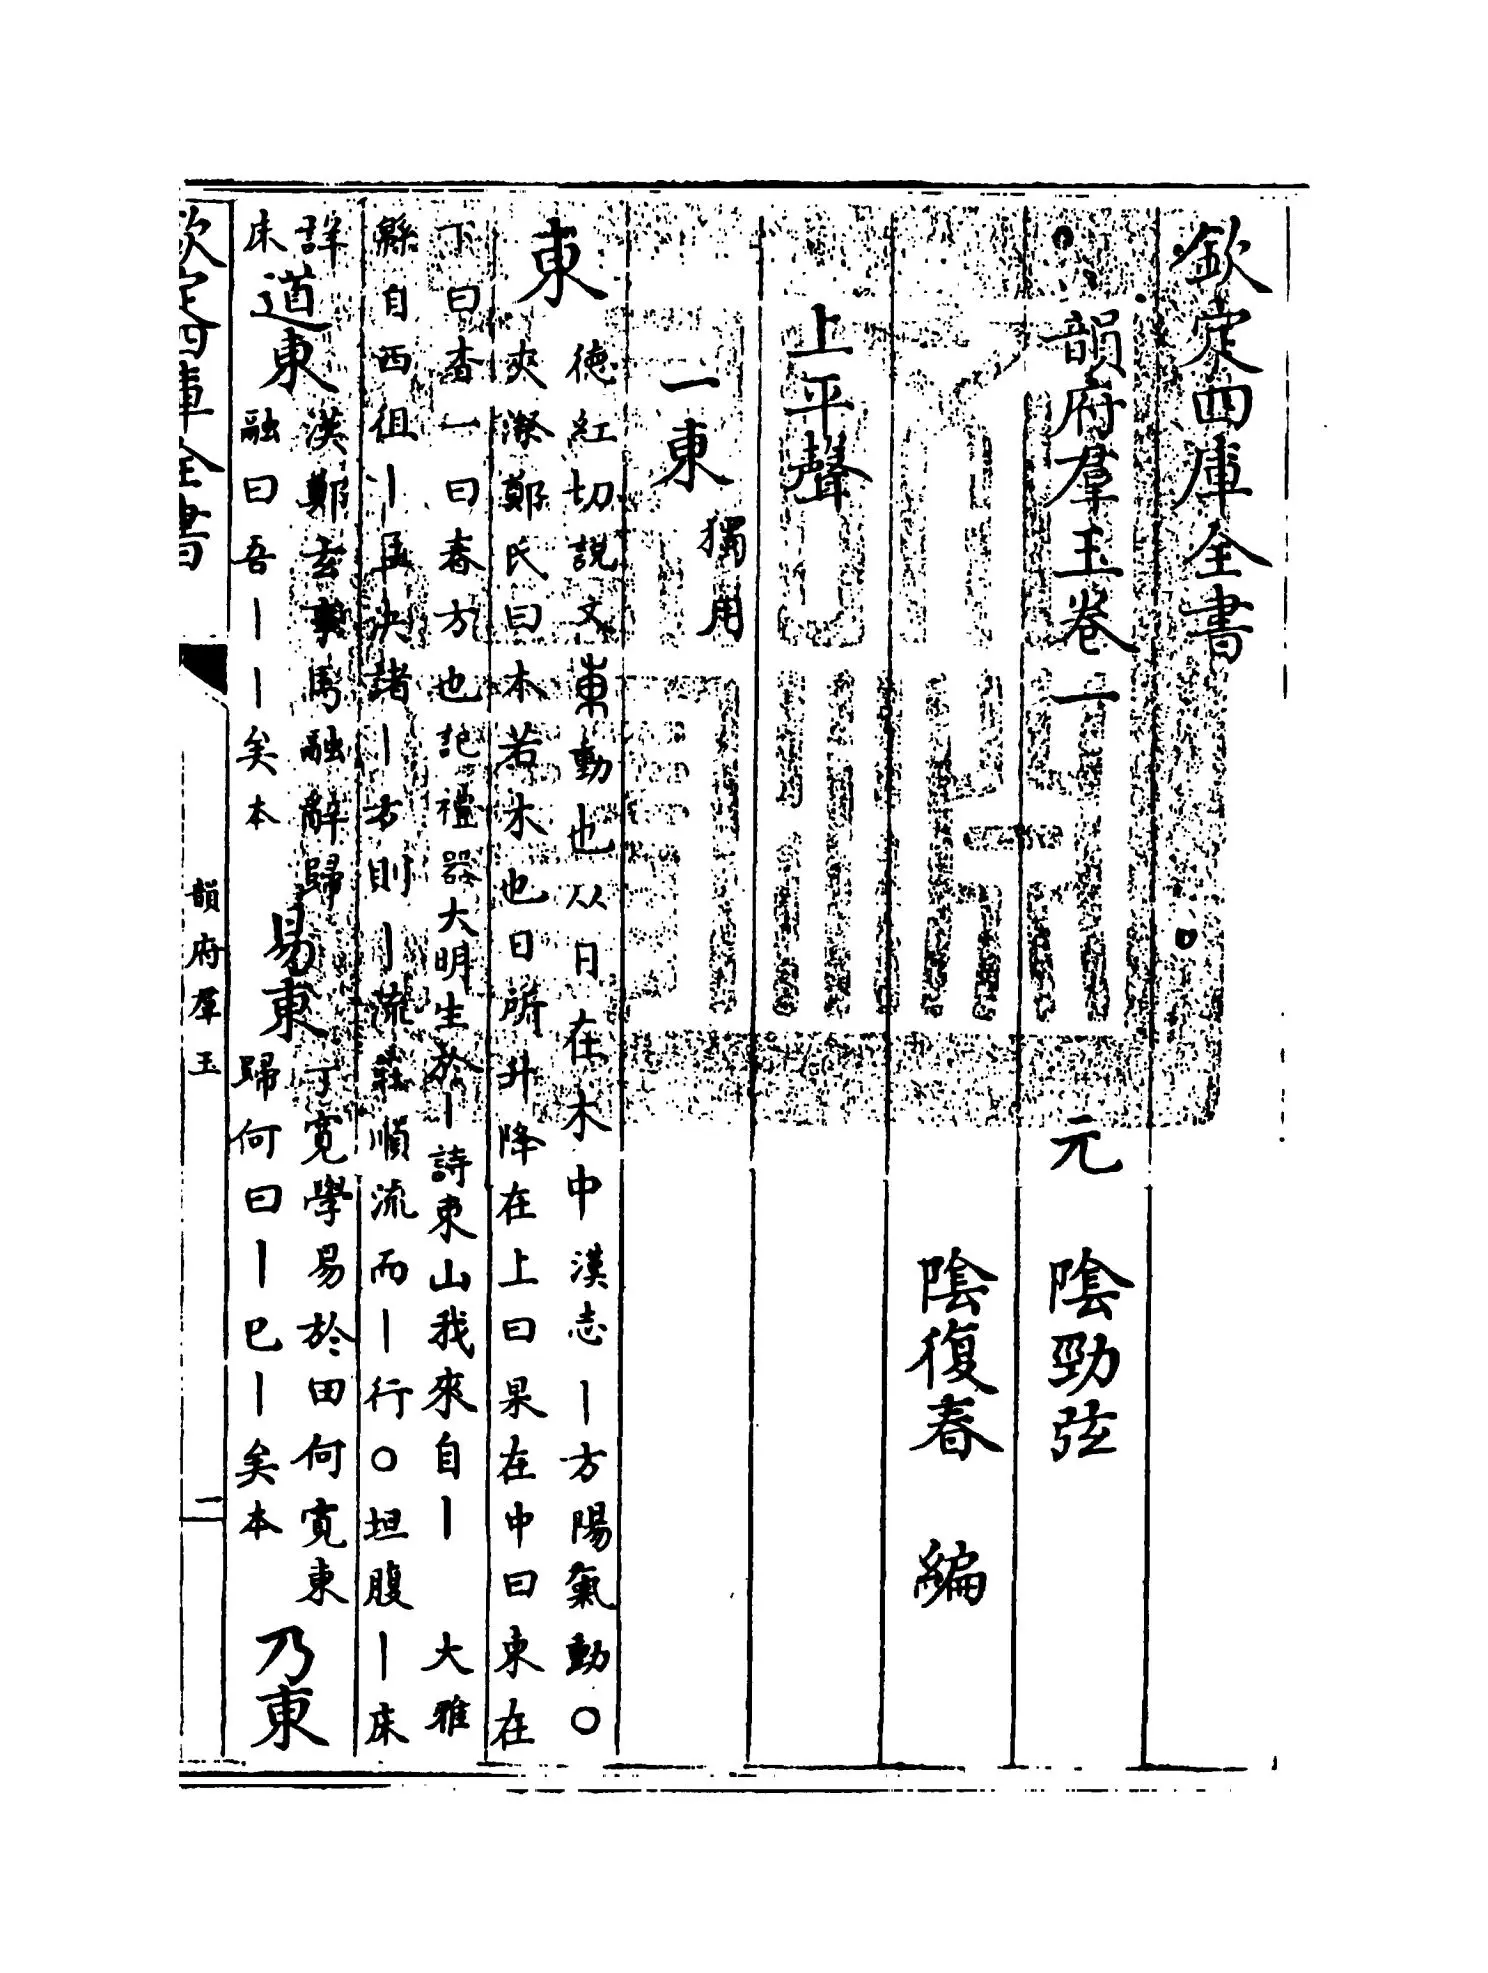 欽定四庫全書
韻府羣玉卷一 元 陰勁弦
陰復春 編
上平聲
一東 獨用
東
德紅切説文東動也从日在木中 漢志丨方陽氣動〇
夾漈鄭氏曰木若木也日所升降在上曰杲在中曰東在
下曰杳一曰春方也記禮器大明生於丨詩東山我來自丨 大雅
緜自西徂丨孟決諸丨方則丨流莊順流而丨行〇坦腹丨床
詳
床
道東
漢鄭玄事馬融辭歸
融曰吾丨丨矣本
易東
丁寬學易於田何寬東
歸何曰丨巳丨矣本
乃東
欽定四庫全書
韻府羣玉
二